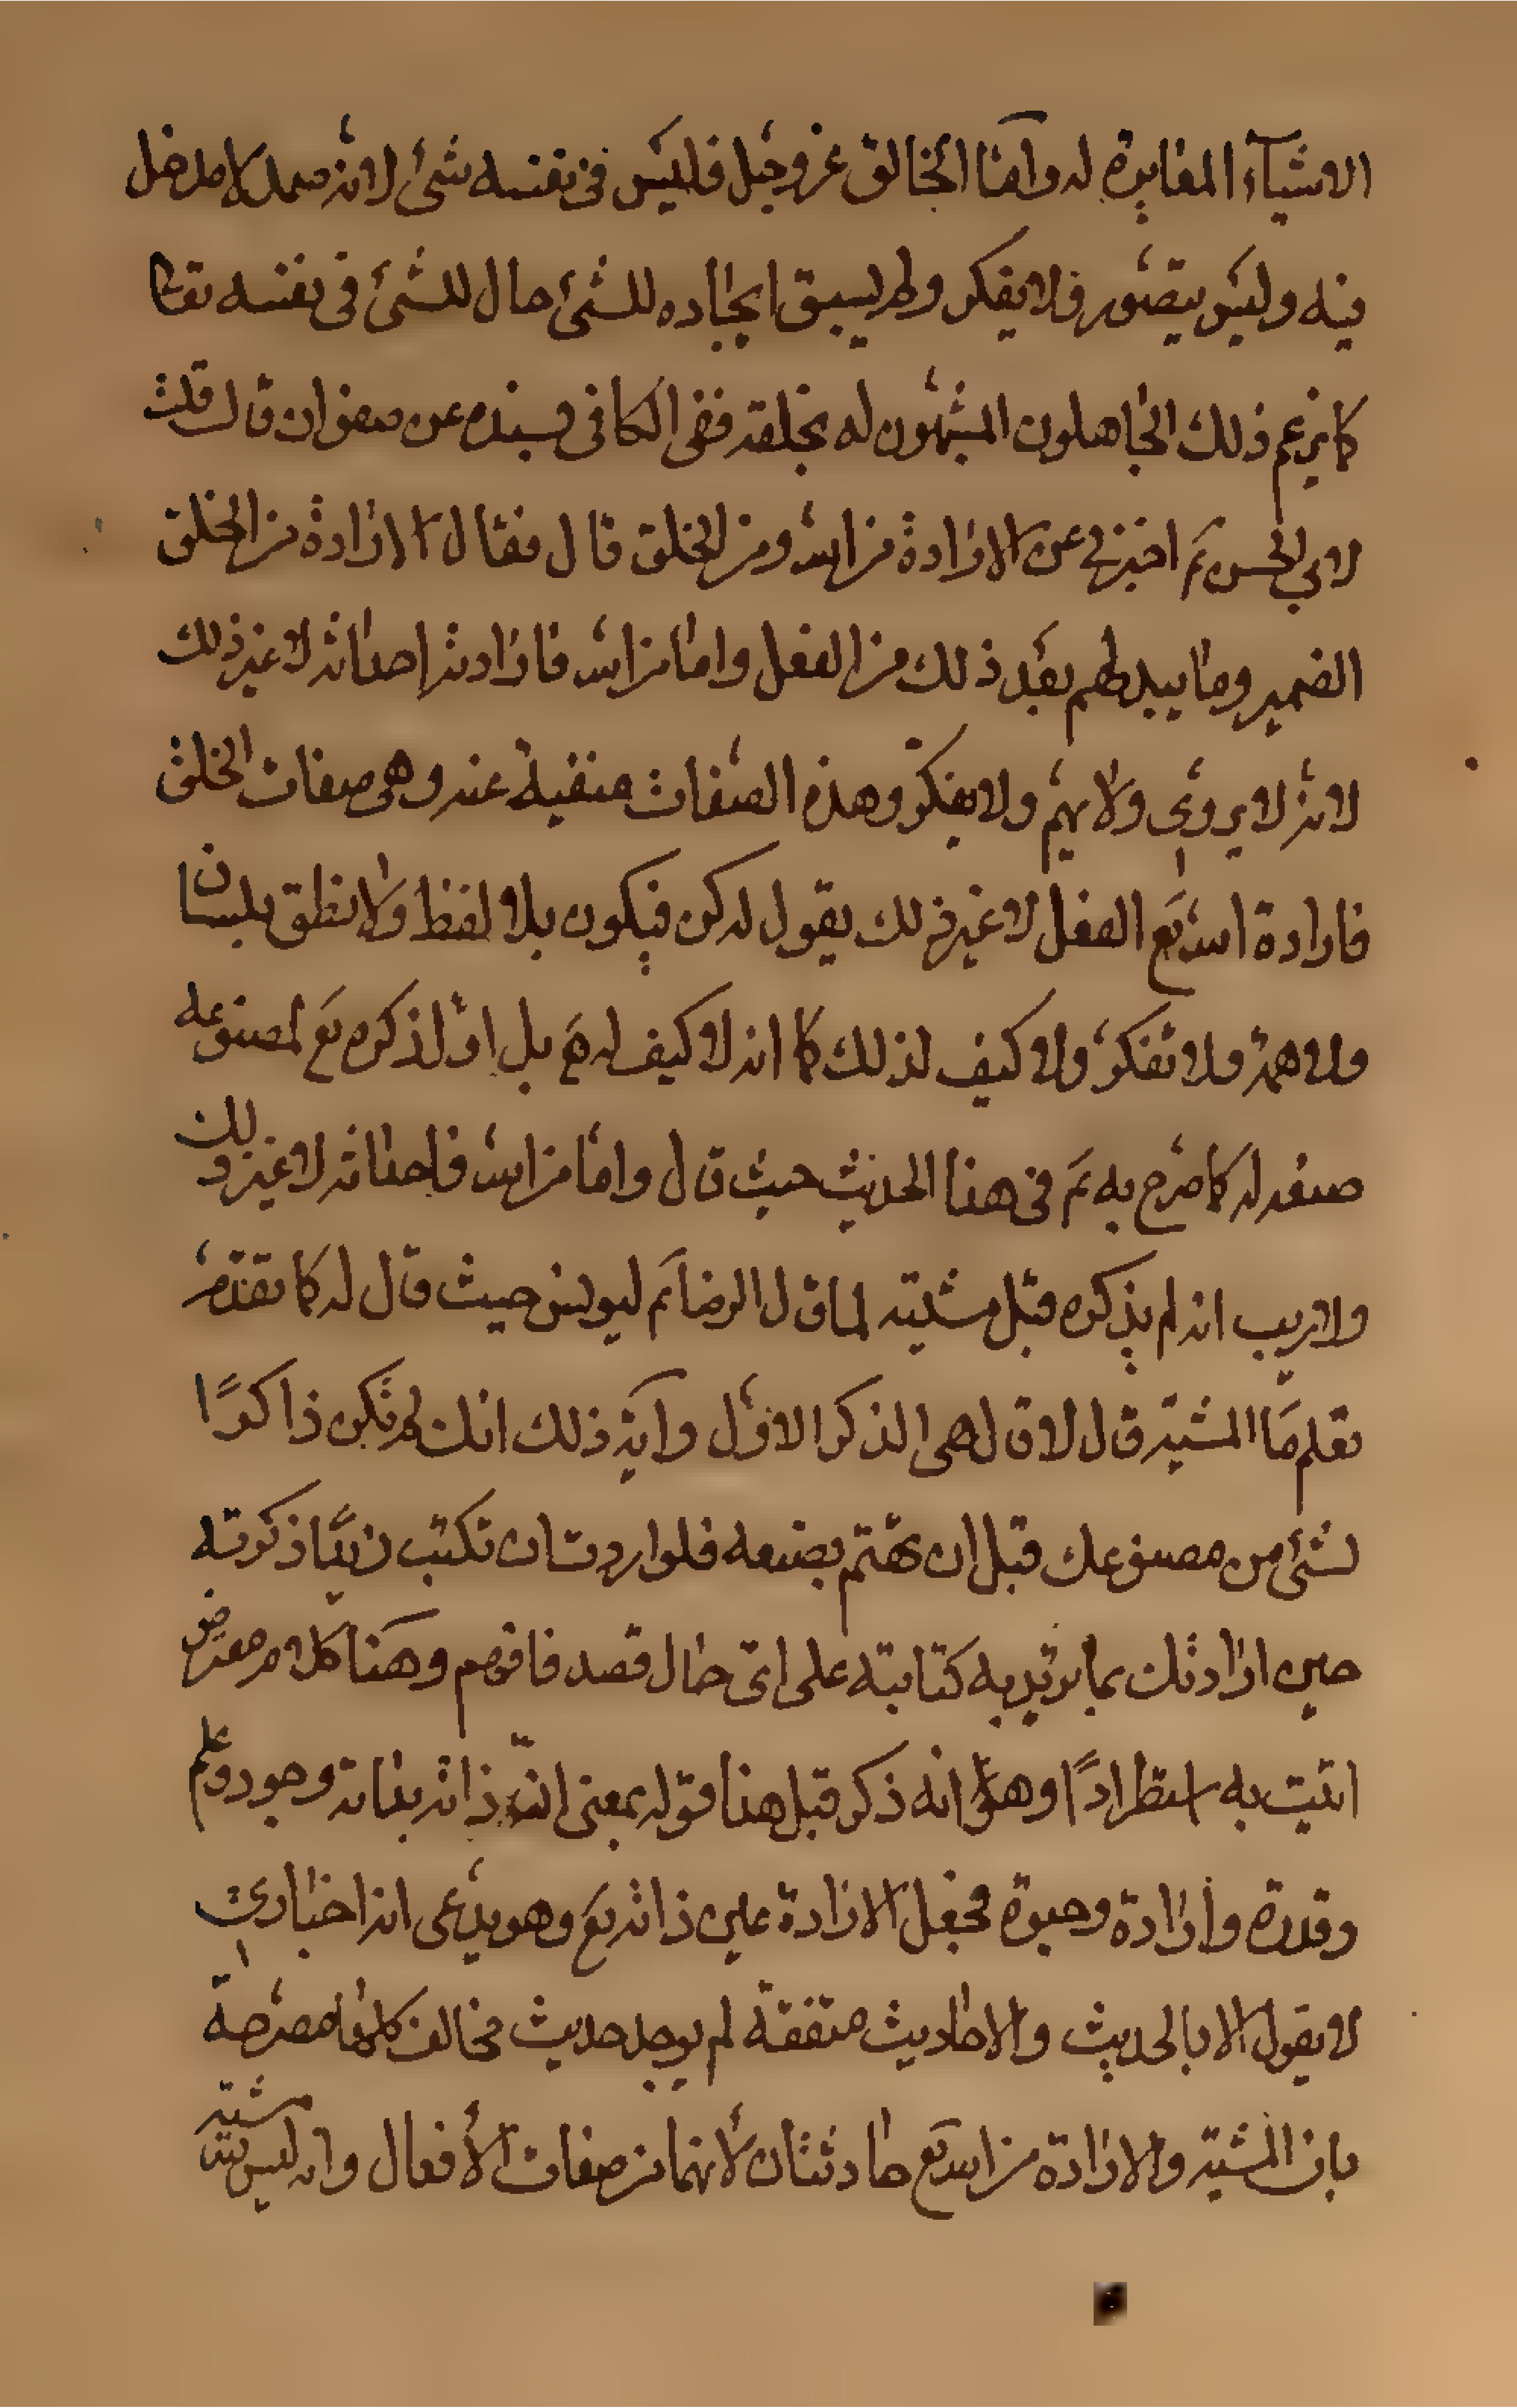 الاشيآء المغايرة له وامّا الخالق عزوجلّ فليس فى نفسه شئ لانّه صمد لا مدخل
فيه وليس يتصّور ولا يفكر ولم يسبق ايجاده للشئ حال للشئ فى نفسه تعالى
كما يزعم ذلك الجاهلون المشبّهون له بخلقه ففى الكافى بسنده عن صفوان قال قلت
لابي الحسن ع اخبرني عن الارادة من الله ومن الخلق قال فقال الارادة من الخلق
الضمير وما يبدو لهم بعد ذلك من الفعل وامّا من الله فارادته احداثه لا غير ذلك
لانّه لا يروّى ولا يهمّ ولا يفكّر وهذه الصّفات منفية عنه وهى صفات الخلق
فارادة الله تع الفعل لا غير ذلك يقول له كن فيكون بلا لفظ ولا نطق بلسان
ولا همة ولا تفكّر ولا كيف لذلك كما انه لا كيف له هَ بل اوّل ذكره تع لمصنوعه
صنعه له كما صرّح به ع فى هذا الحديث حيث قال وامّا من الله فاحداثه لا غير ذلك
ولا ريب انه لم يذكره قبل مشيته لما قال الرضا ع ليونس حيث قال له كما تقدّم
تعلم ما المشية قال لا قال هى الذكر الاوّل وآية ذلك انك لم تكن ذاكرًا
لشئ من مصنوعك قبل ان تهتم بصنعه فلو اردت ان تكتب زيدًا ذكرته
حين ارادتك بما تريد به كتابته على اىّ حال قصد فافهم وهذا كلام معترض
اتيت به استطرادًا وهو انه ذكر قبل هذا قوله بمعنى انّ ذاته بذاته وجود وعلم
وقدرة وارادة وحيوة فجعل الارادة عين ذاته تع وهو يدّعى انه اخبارىّ
لا يقول الا بالحديث والاحاديث متفقة لم يوجد حديث مخالف كلها مصرّحة
بان المشية والارادة من الله تع حادثتان لانّهما من صفات الأفعال وانه ليس لله مشية